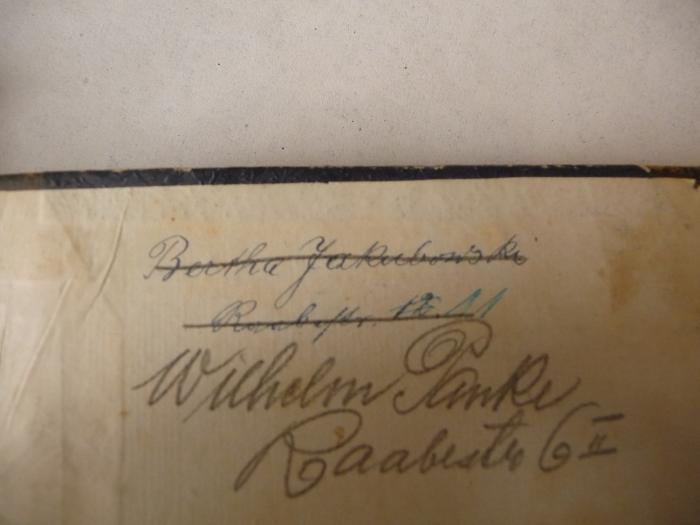 Bertha Jakubowski
Raabestr. 11
Wilhelm Panke
Raabestr 6 II